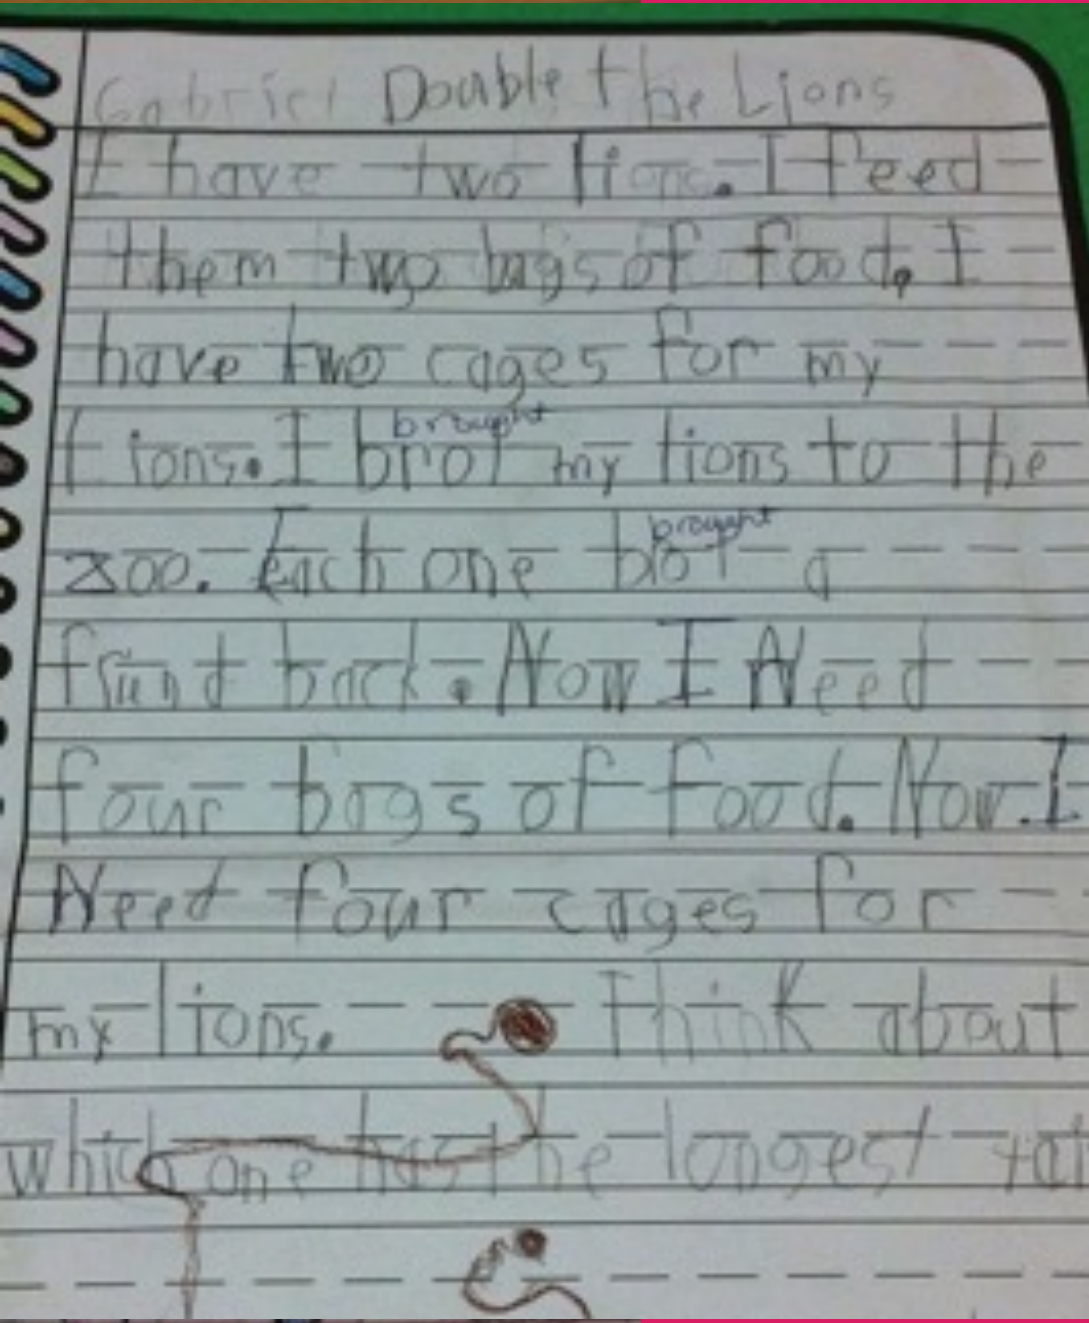 Gabriel Double the Lions
I have two lions. I feed
them two bags of food. I
have two cages for my
brought
Lions. I brot my lions to the
brought
zoo. Each one brot a
friund back. Now I Need
four bags of food. Now. I
Need four cages for
my lions. Think about
which one has the longest tail